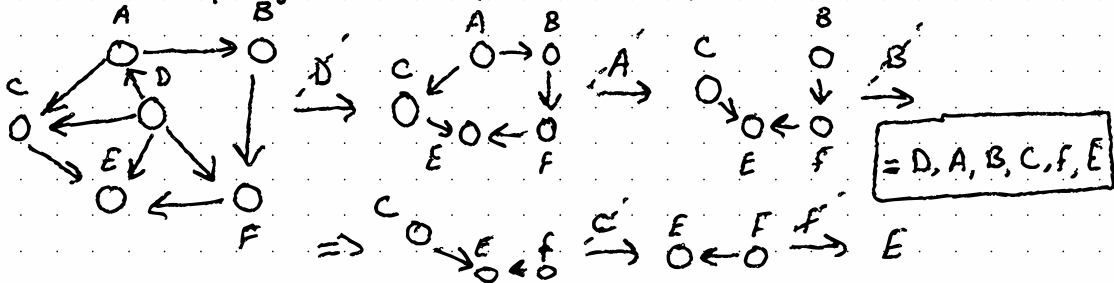 A B
D
C
E
F
D
A B
C
E F
A
C B
E f
B
= D, A, B, C, f, E
=> C E f
C
E F
f
E